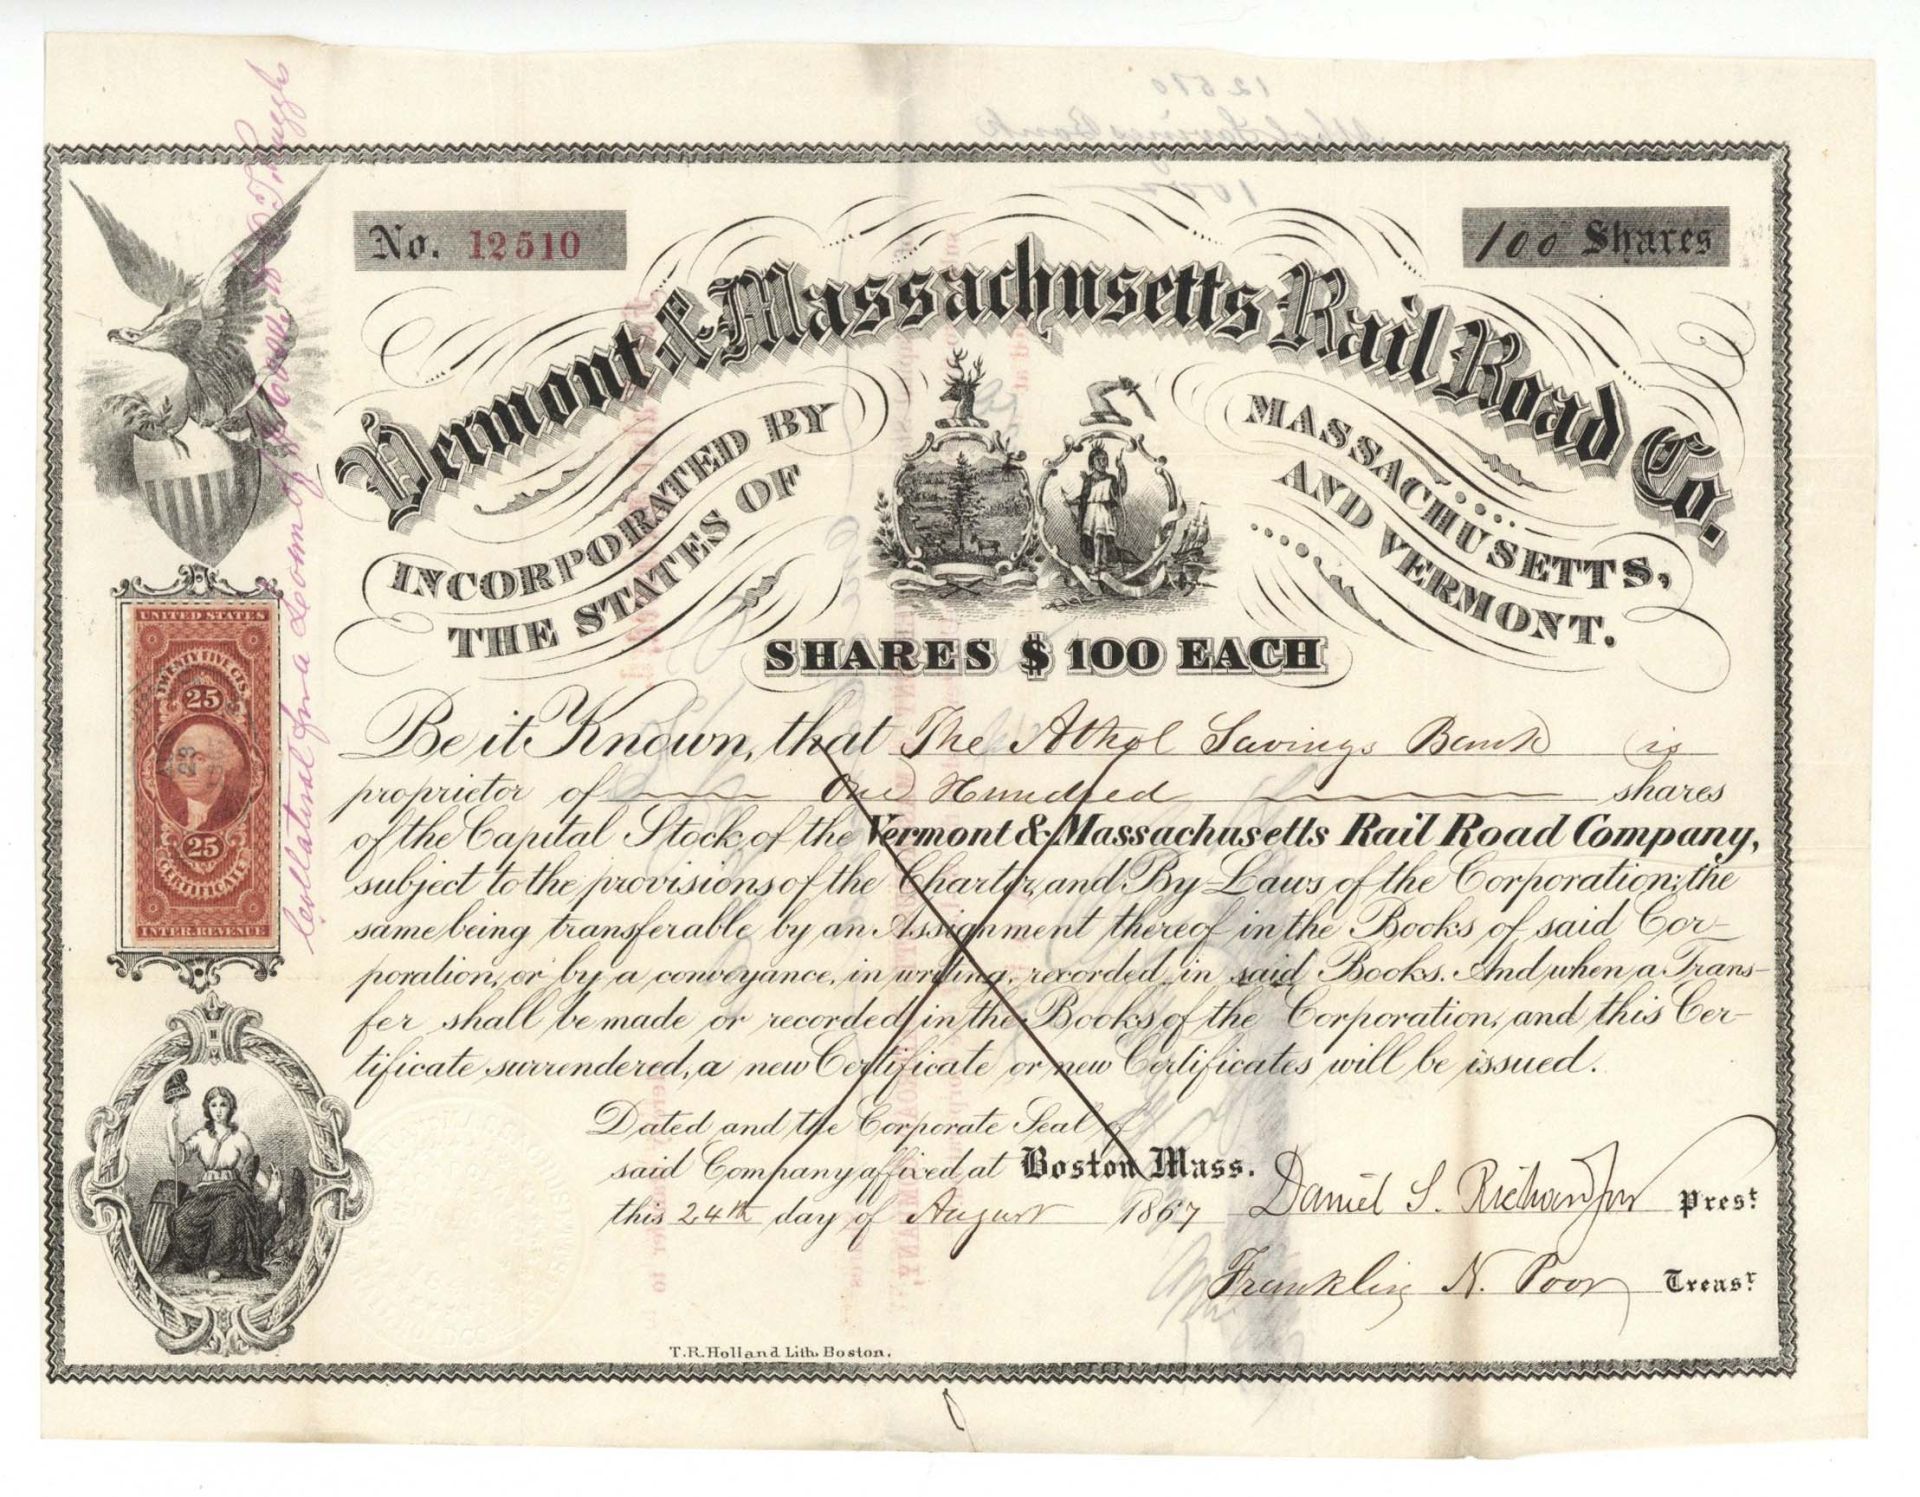 No. 12510
100 Shares
Vermont & Massachusetts Rail Road Co.
INCORPORATED BY
THE STATES OF
MASSACHUSETTS,
AND VERMONT.
SHARES $100 EACH
Be it Known, that The Athol Savings Bank is
proprietor of One Hundred shares
of the Capital Stock of the Vermont & Massachusetts Rail Road Company,
subject to the provisions of the Charter, and By-Laws of the Corporation; the
same being transferable by an Assignment thereof in the Books of said Cor-
poration, or by a conveyance, in writing, recorded in said Books. And when a Trans-
fer shall be made or recorded in the Books of the Corporation, and this Cer-
tificate surrendered, a new Certificate or new Certificates will be issued.
Dated and the Corporate Seal of
said Company affixed at Boston Mass.
this 24th day of August 1867
Daniel S. Richardson Prest
Franklin N. Poor Treasr
T.R. Holland Lith. Boston.
UNITED STATES
TWENTY FIVE CTS.
25
25
CERTIFICATE
INTER. REVENUE
Collateral for a Loan of
12510
Athol Savings Bank